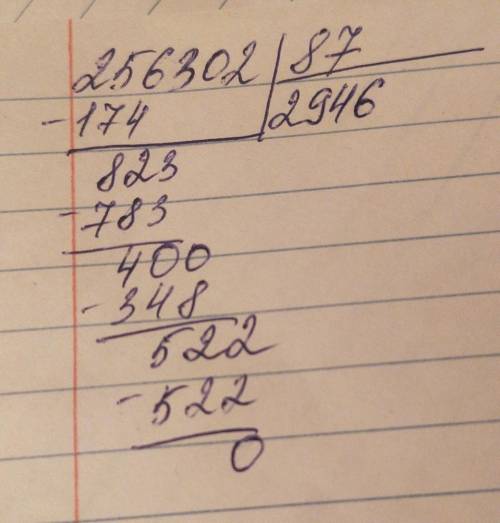 256302 87
-174 2946
823
-783
400
-348
522
-522
0